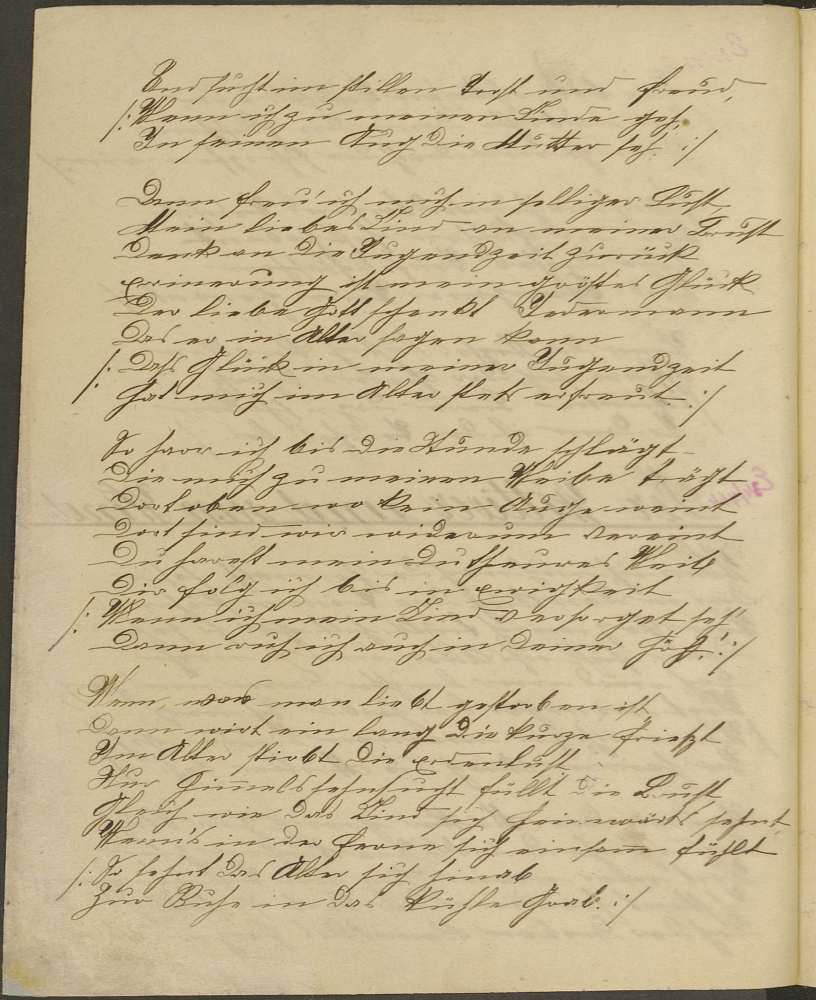 Und sucht im stillen Trost und Freud,
/: Wenn ich zu meinem Kinde geh,
In seinem Aug die Mutter seh. :/
Dann freu' ich mich in selliger Lust
Mein liebes Kind an meiner Brust
Denk an die Jugendzeit zurück
Erinerung ist mein größtes Glück
Der liebe Gott schenkt Jedermann
Das er im Alter sagen kann
/: Dass Glück in meiner Jugendzeit
Hat mich im Alter stets erfreut. :/
So harr ich bis die Stunde schlägt
Die mich zu meinem Weibe trägt
Dort oben wo kein Auge weint
Dort sind wir widerum vereint
Du harrst mein du theures Weib
Dir folg ich bis in Ewigkeit
/: Wenn ich mein Kind versorget seh'
Dann ruh ich auch in deiner Höh'. :/
Wem, was man liebt gestorben ist
Dem wirt ein lang die kurze Friest
Im Alter stirbt die Erdenlust
Nur Himmelssehnsucht füllt die Brust
Gleich wie das Kind sich heimwärts sehnt,
Wenn's in der Ferne sich einsam fühlt
/: So sehnt das Alter sich hinab
Zur Ruhe in das kühle Grab. :/